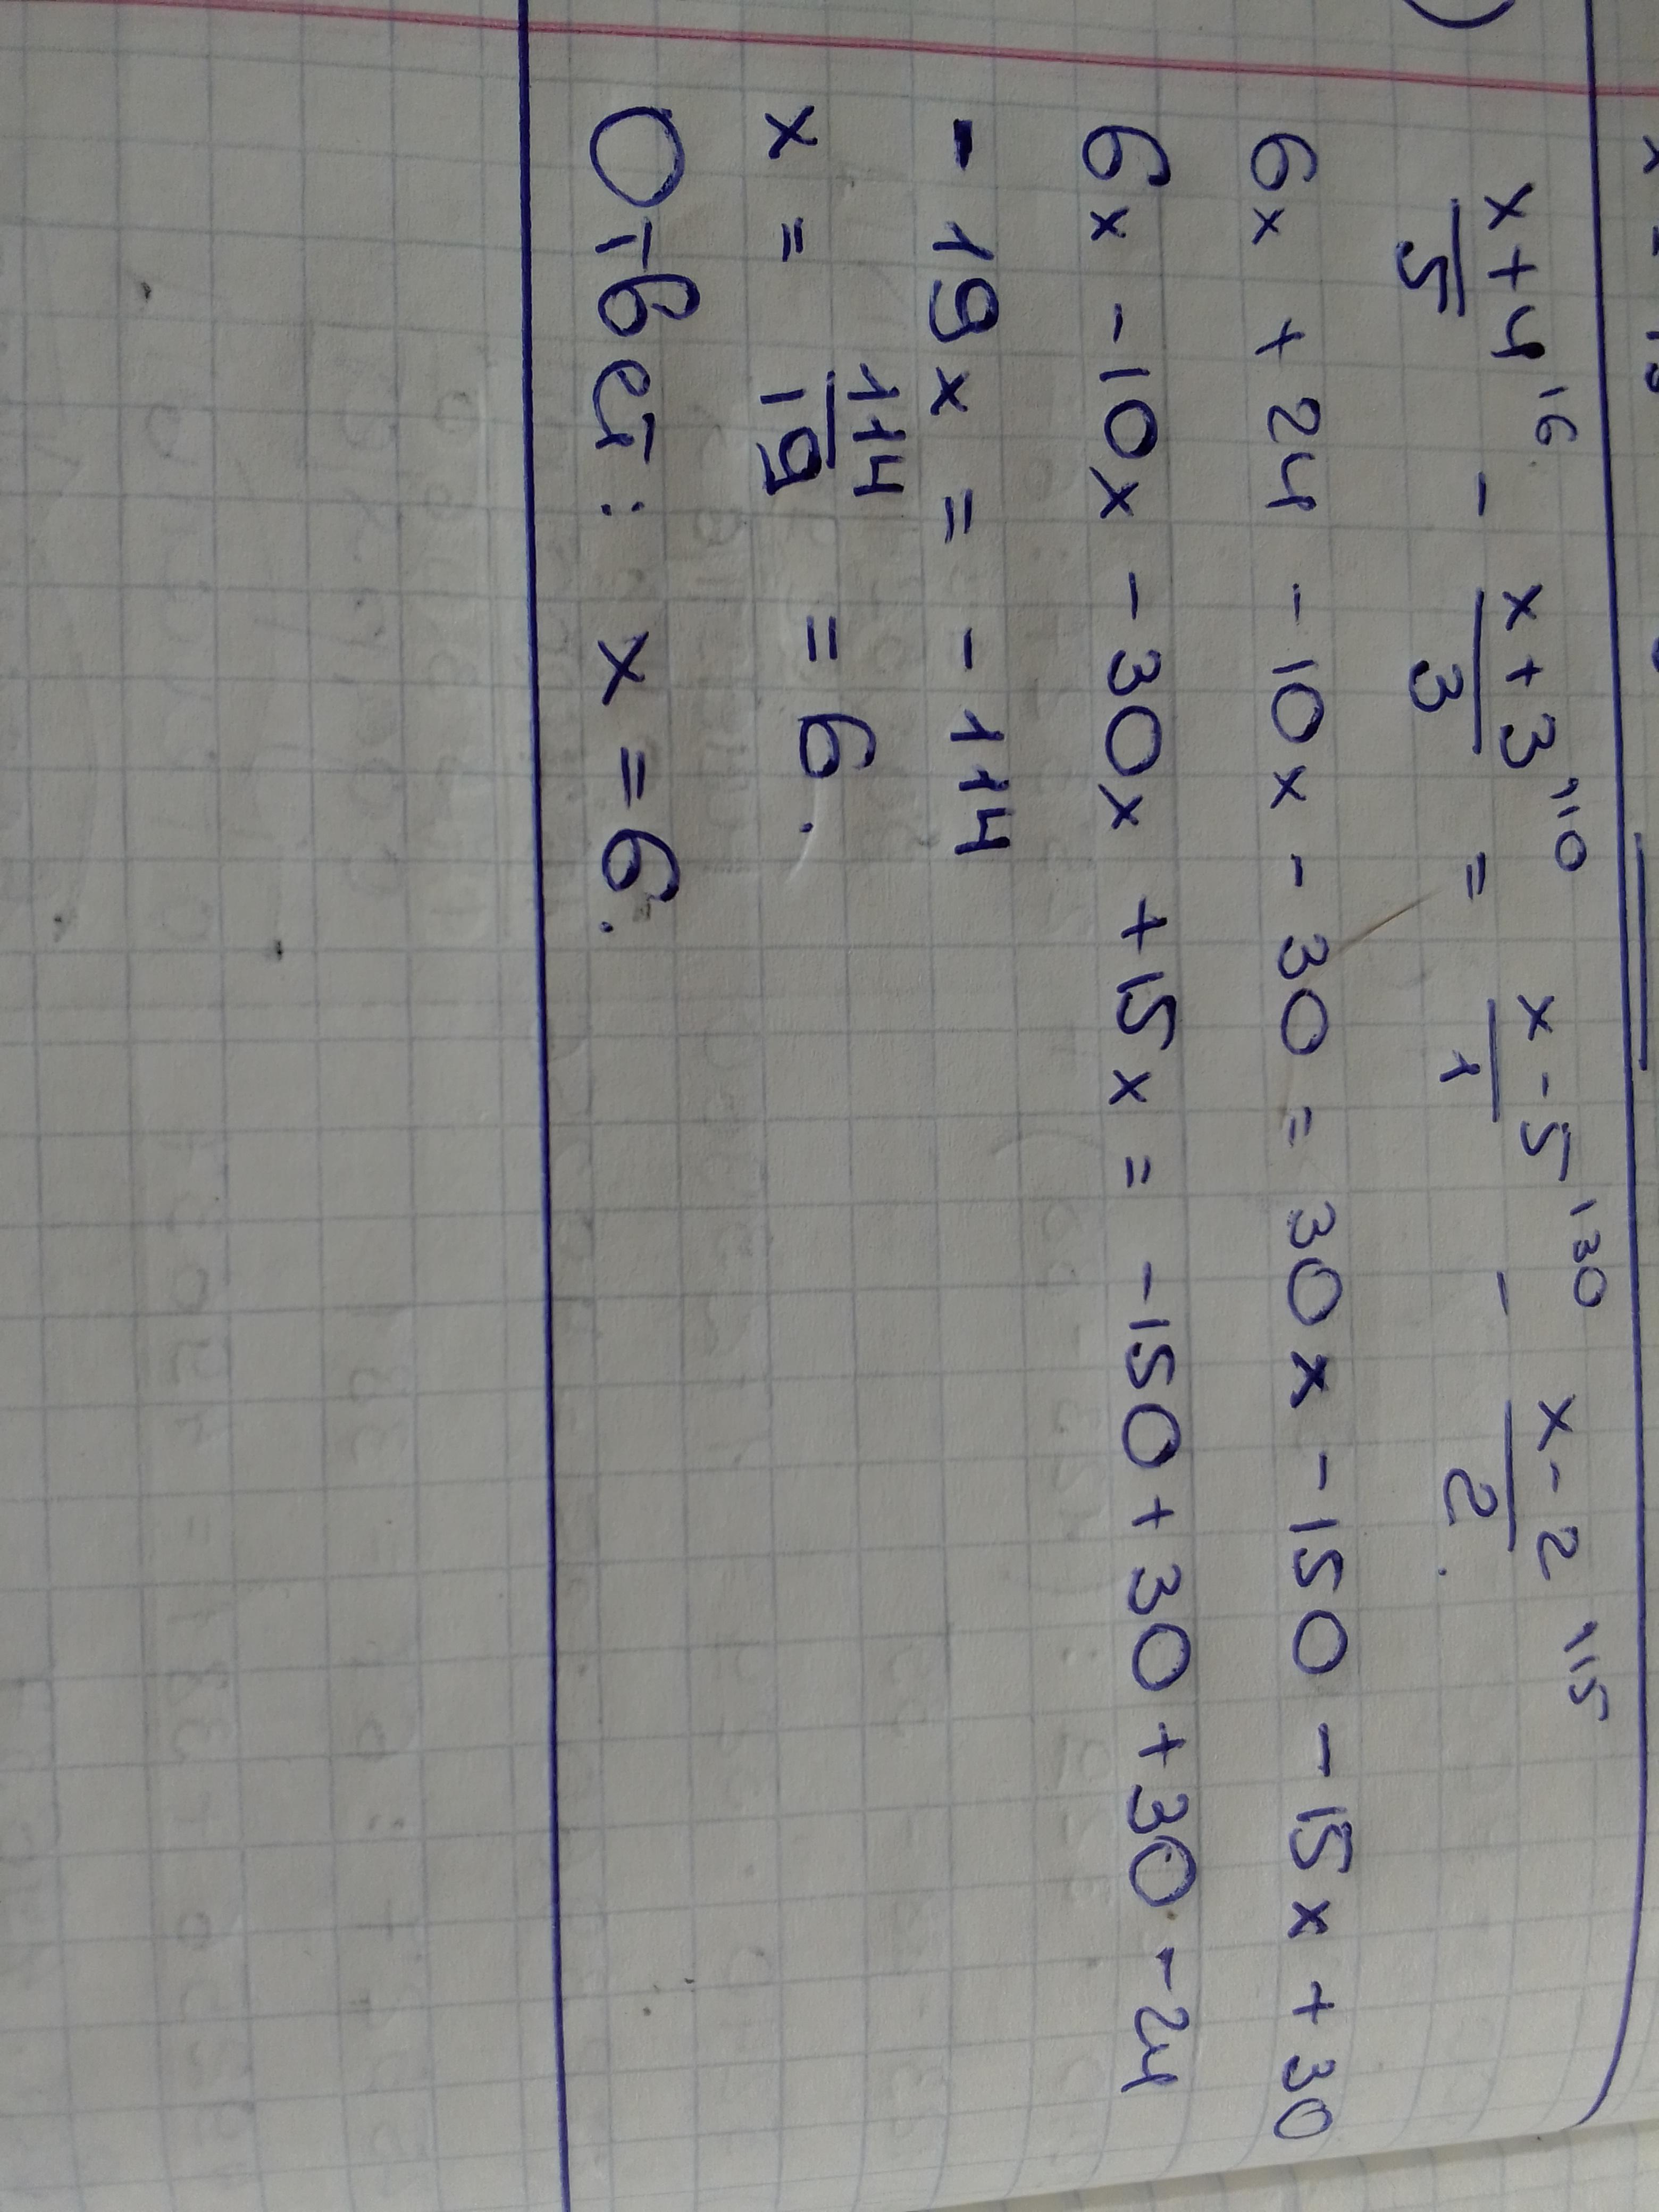 x+4\6 / 5 - x+3\10 / 3 = x-5\30 / 1 - x-2\15 / 2.
6x + 24 - 10x - 30 = 30x - 150 - 15x + 30
6x - 10x - 30x + 15x = -150 + 30 + 30 - 24
- 19x = - 114
x = 114/19 = 6.
Ответ: x = 6.